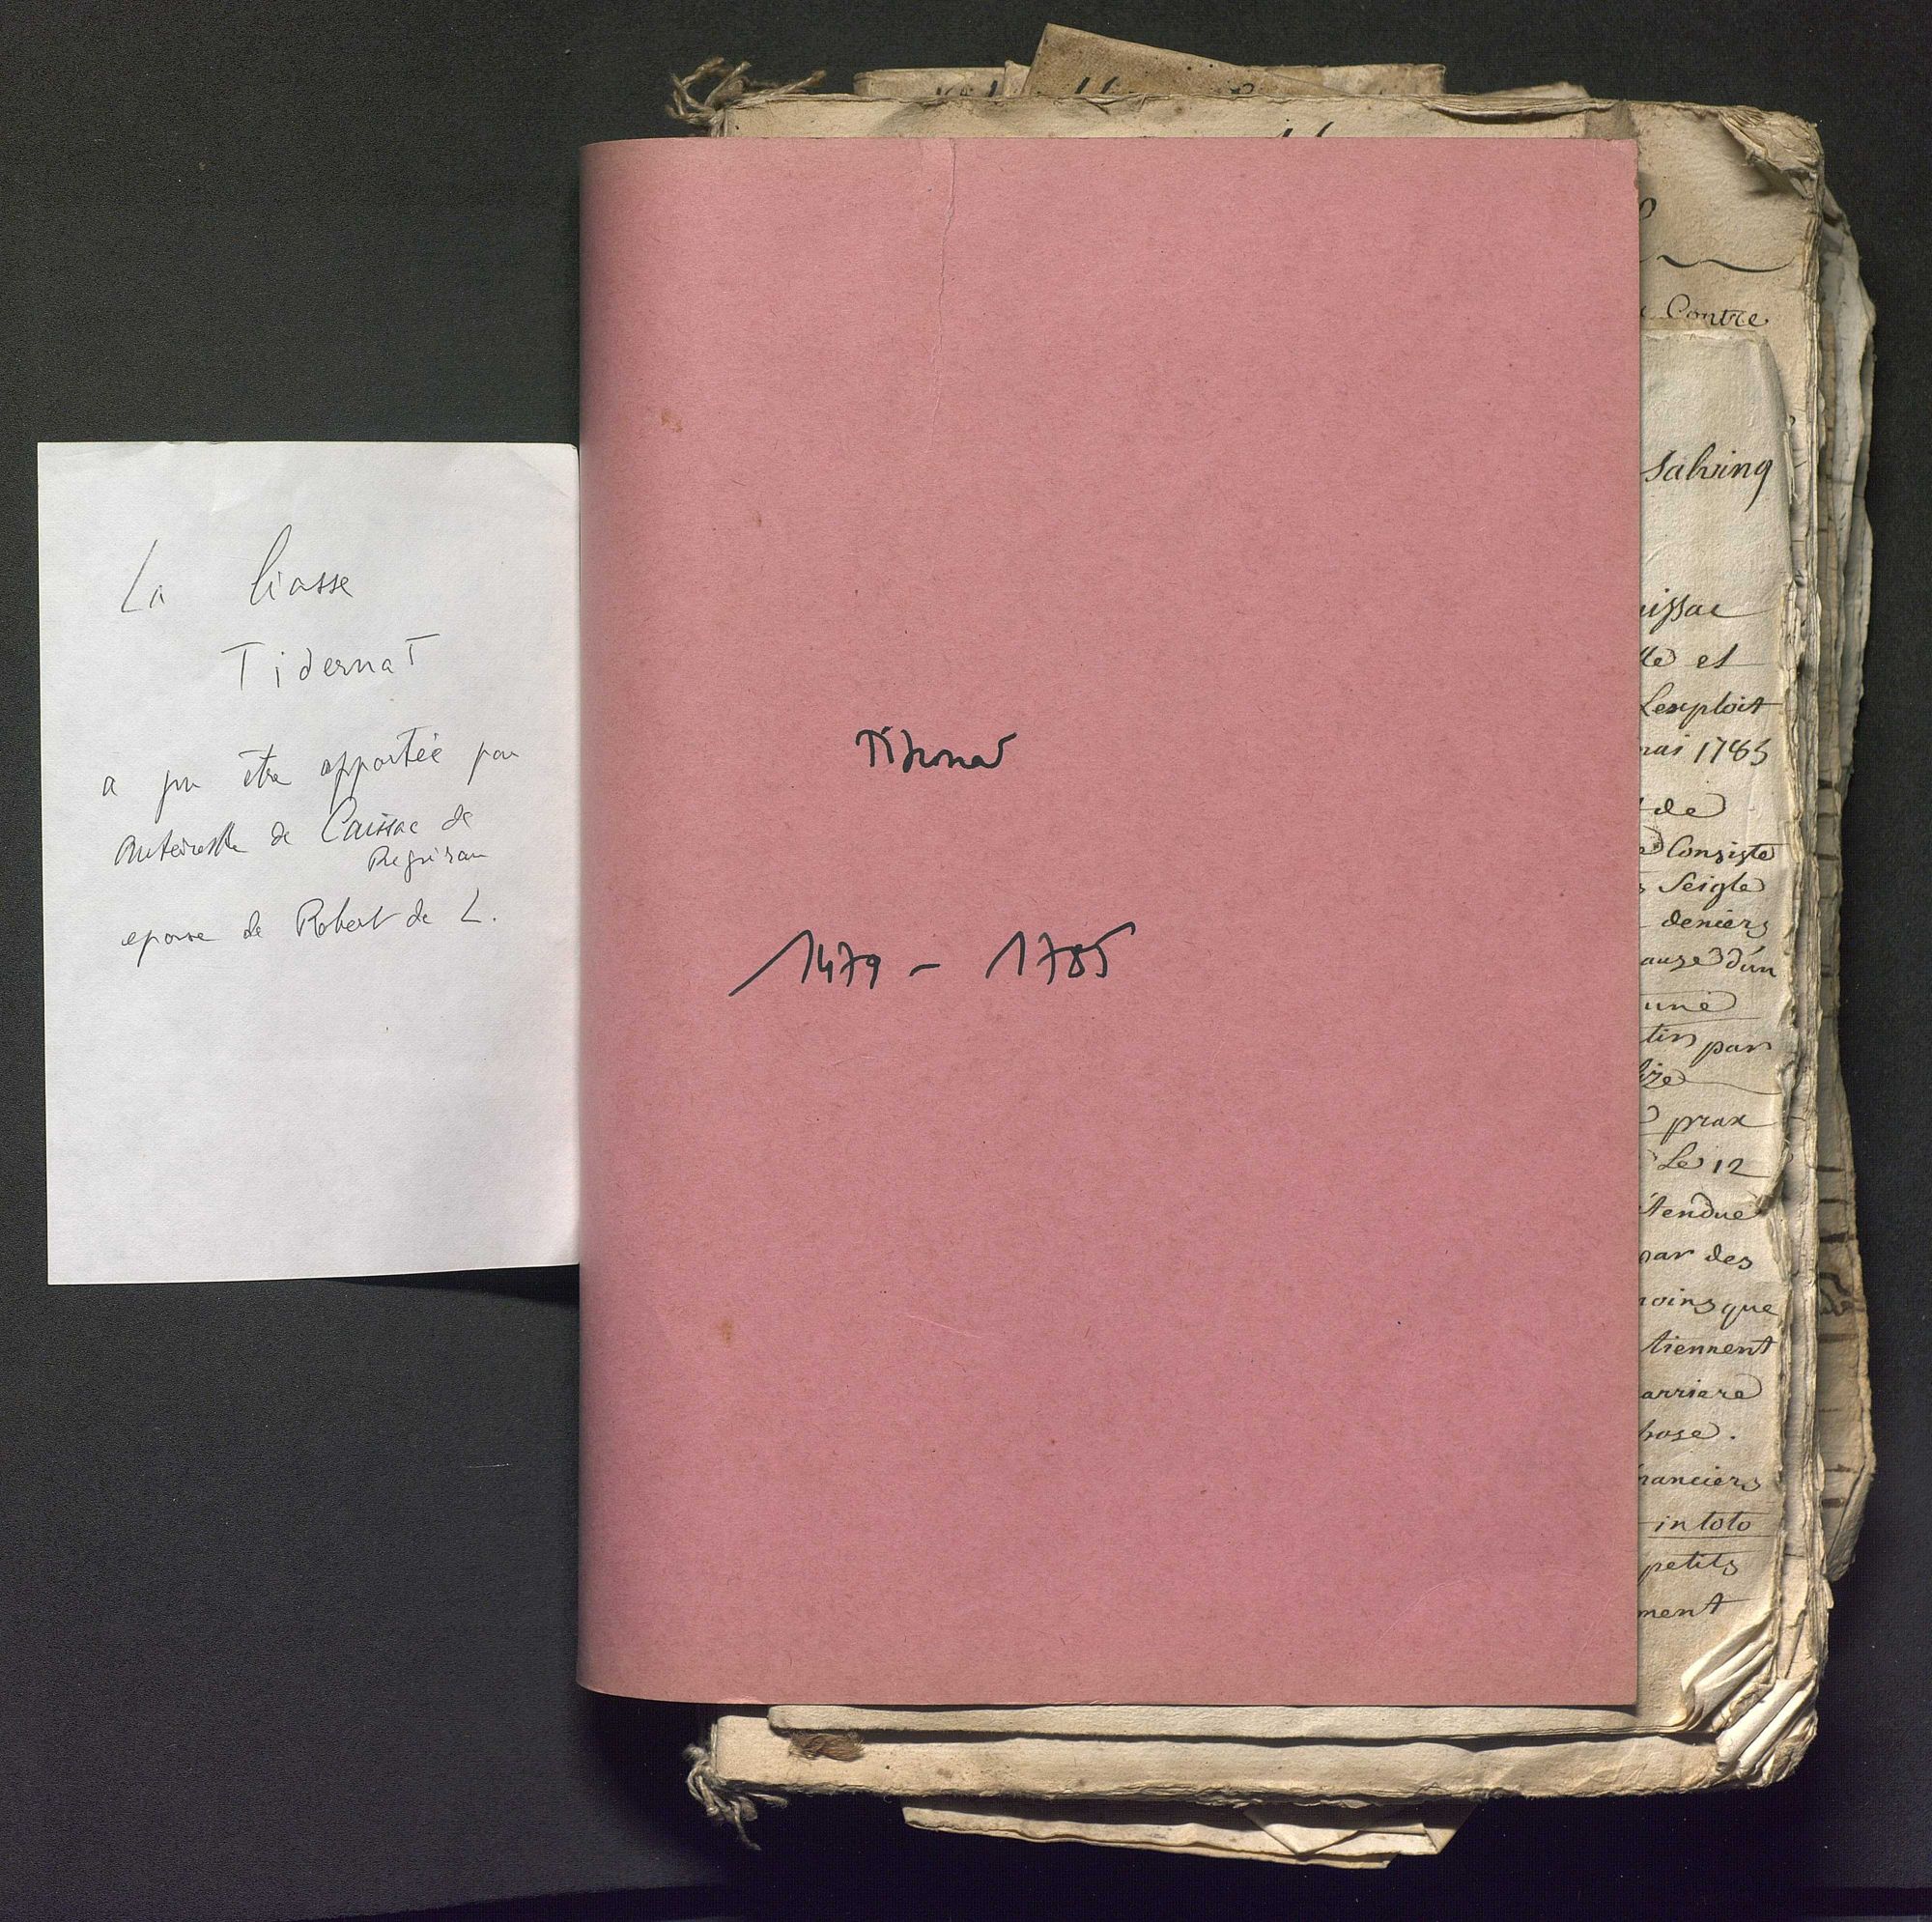 La liasse
Tidernat
a pu être apportée par
Antoinette de Caissac de
épouse de Robert de L.
Tidernat
1479 - 1785
Contre
Salving
issac
et
Lexploit
mai 1785
de
Consiste
Seigle
deniers
d'un
une
par
prax
Le 12
tendue
par des
moins que
tiennent
arriere
hose.
nanciers
in toto
petits
ment